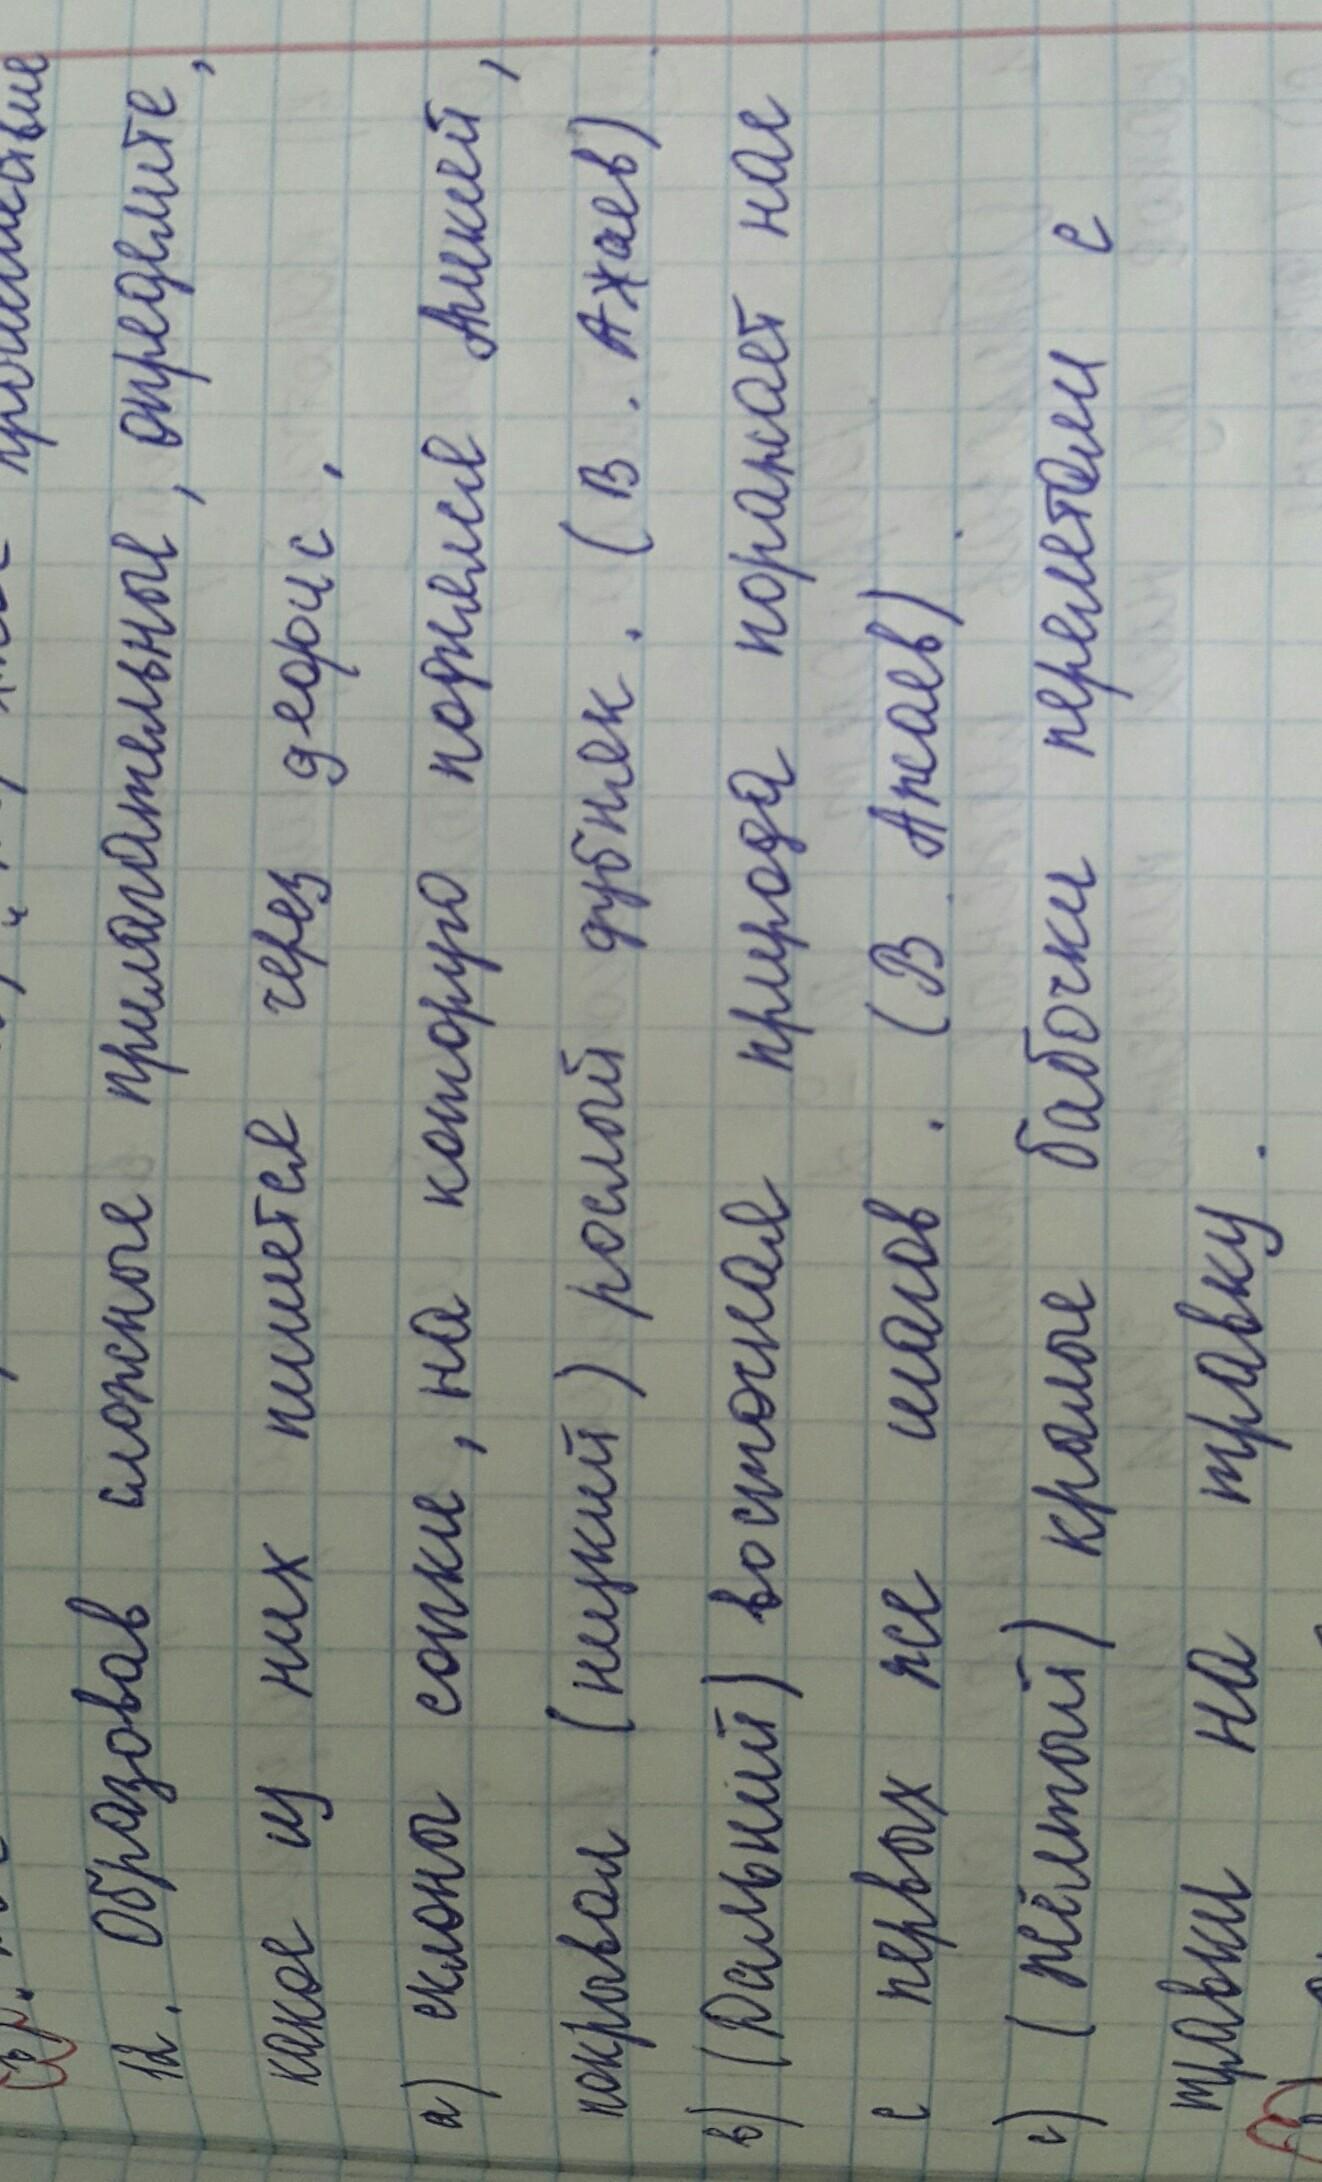 12. Образовав сложные прилагательные, определите,
какое из них пишется через дефис.
а) склоны сопки, на которую поднялся Аникей,
покрывал (низкий) рослый дубняк. (В. Ажаев)
в) (Дальний) восточная природа поражает нас
с первых же шагов. (В. Ажаев)
с) (жёлтый) крылые бабочки перелетали с
травки на травку.